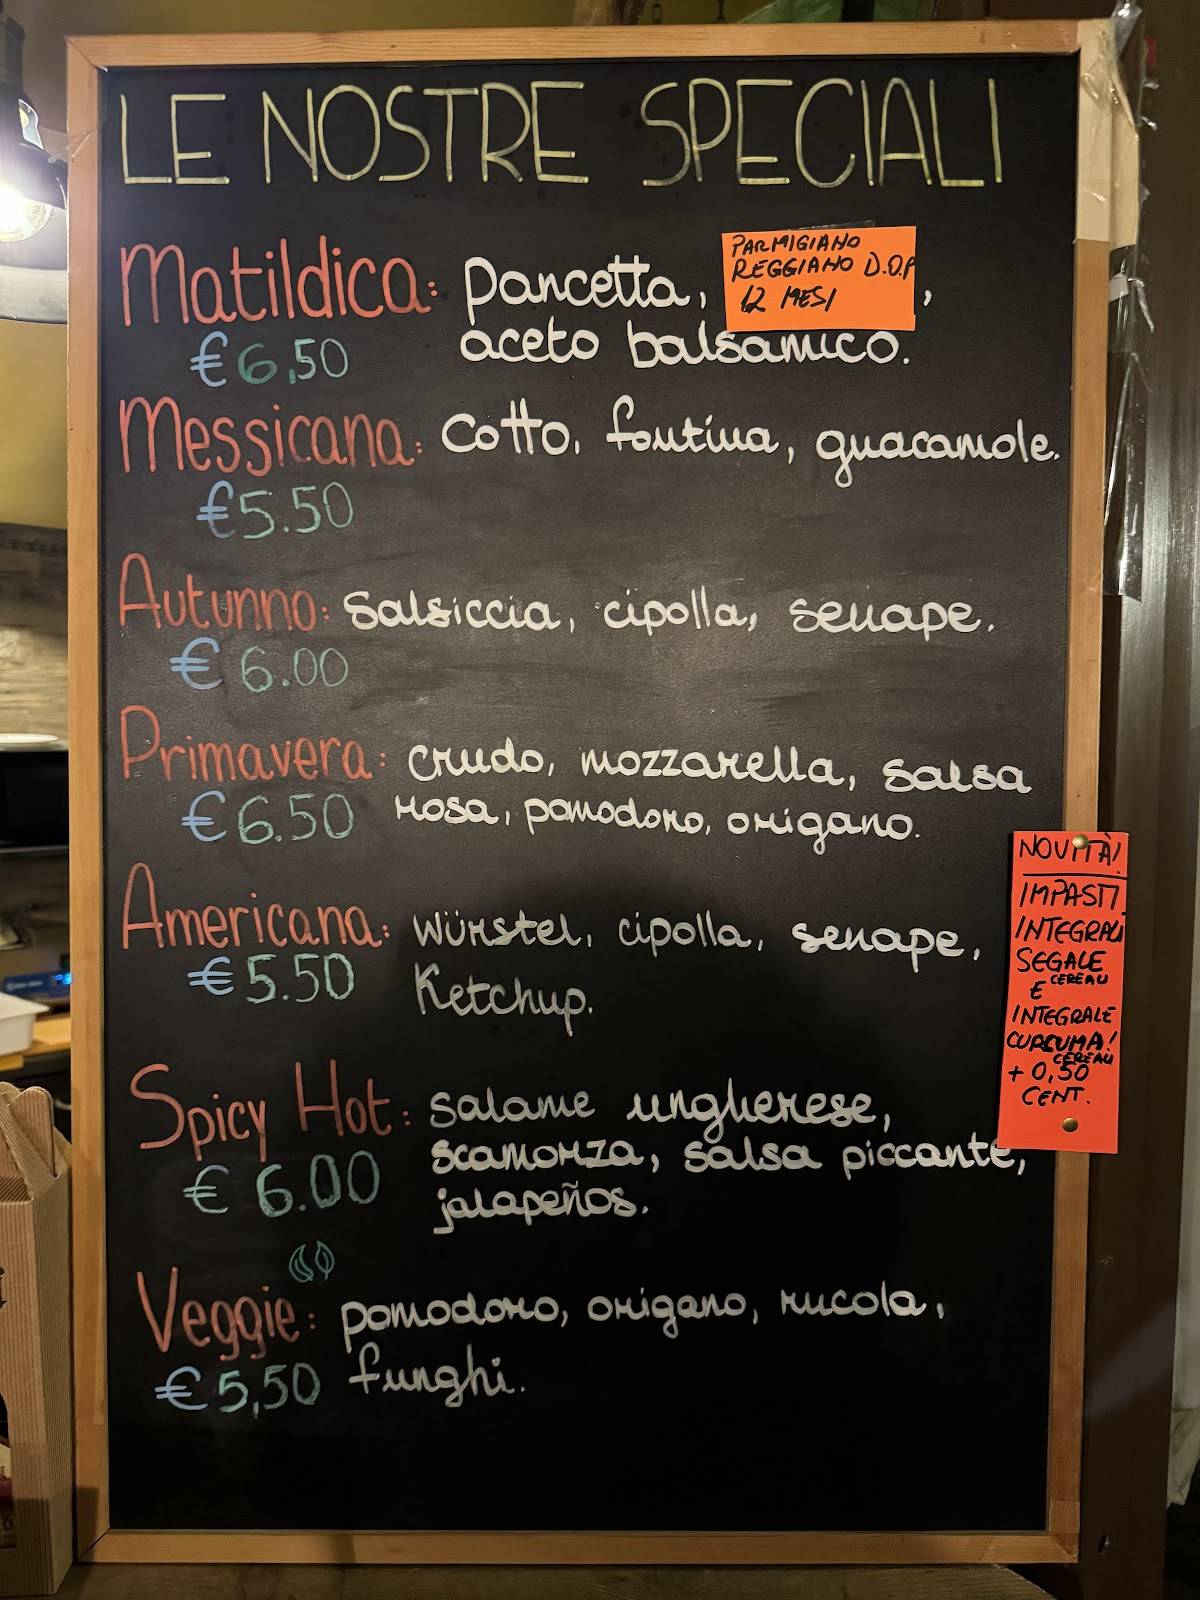 LE NOSTRE SPECIALI
Matildica: pancetta, PARMIGIANO
REGGIANO D.O.P
12 MESI ,
€6,50 aceto balsamico.
Messicana: cotto, fontina, guacamole.
€5.50
Autunno: salsiccia, cipolla, senape.
€6.00
Primavera: crudo, mozzarella, salsa
€6.50 rosa, pomodoro, origano.
Americana: würstel, cipolla, senape,
€5.50 Ketchup.
Spicy Hot: salame ungherese,
€6.00 scamorza, salsa piccante,
jalapeños.
Veggie: pomodoro, origano, rucola,
€5,50 funghi.
NOVITÀ!
IMPASTI
INTEGRALI
SEGALE
CEREALI
E
INTEGRALE
CURCUMA!
CEREALI
+0,50
CENT.